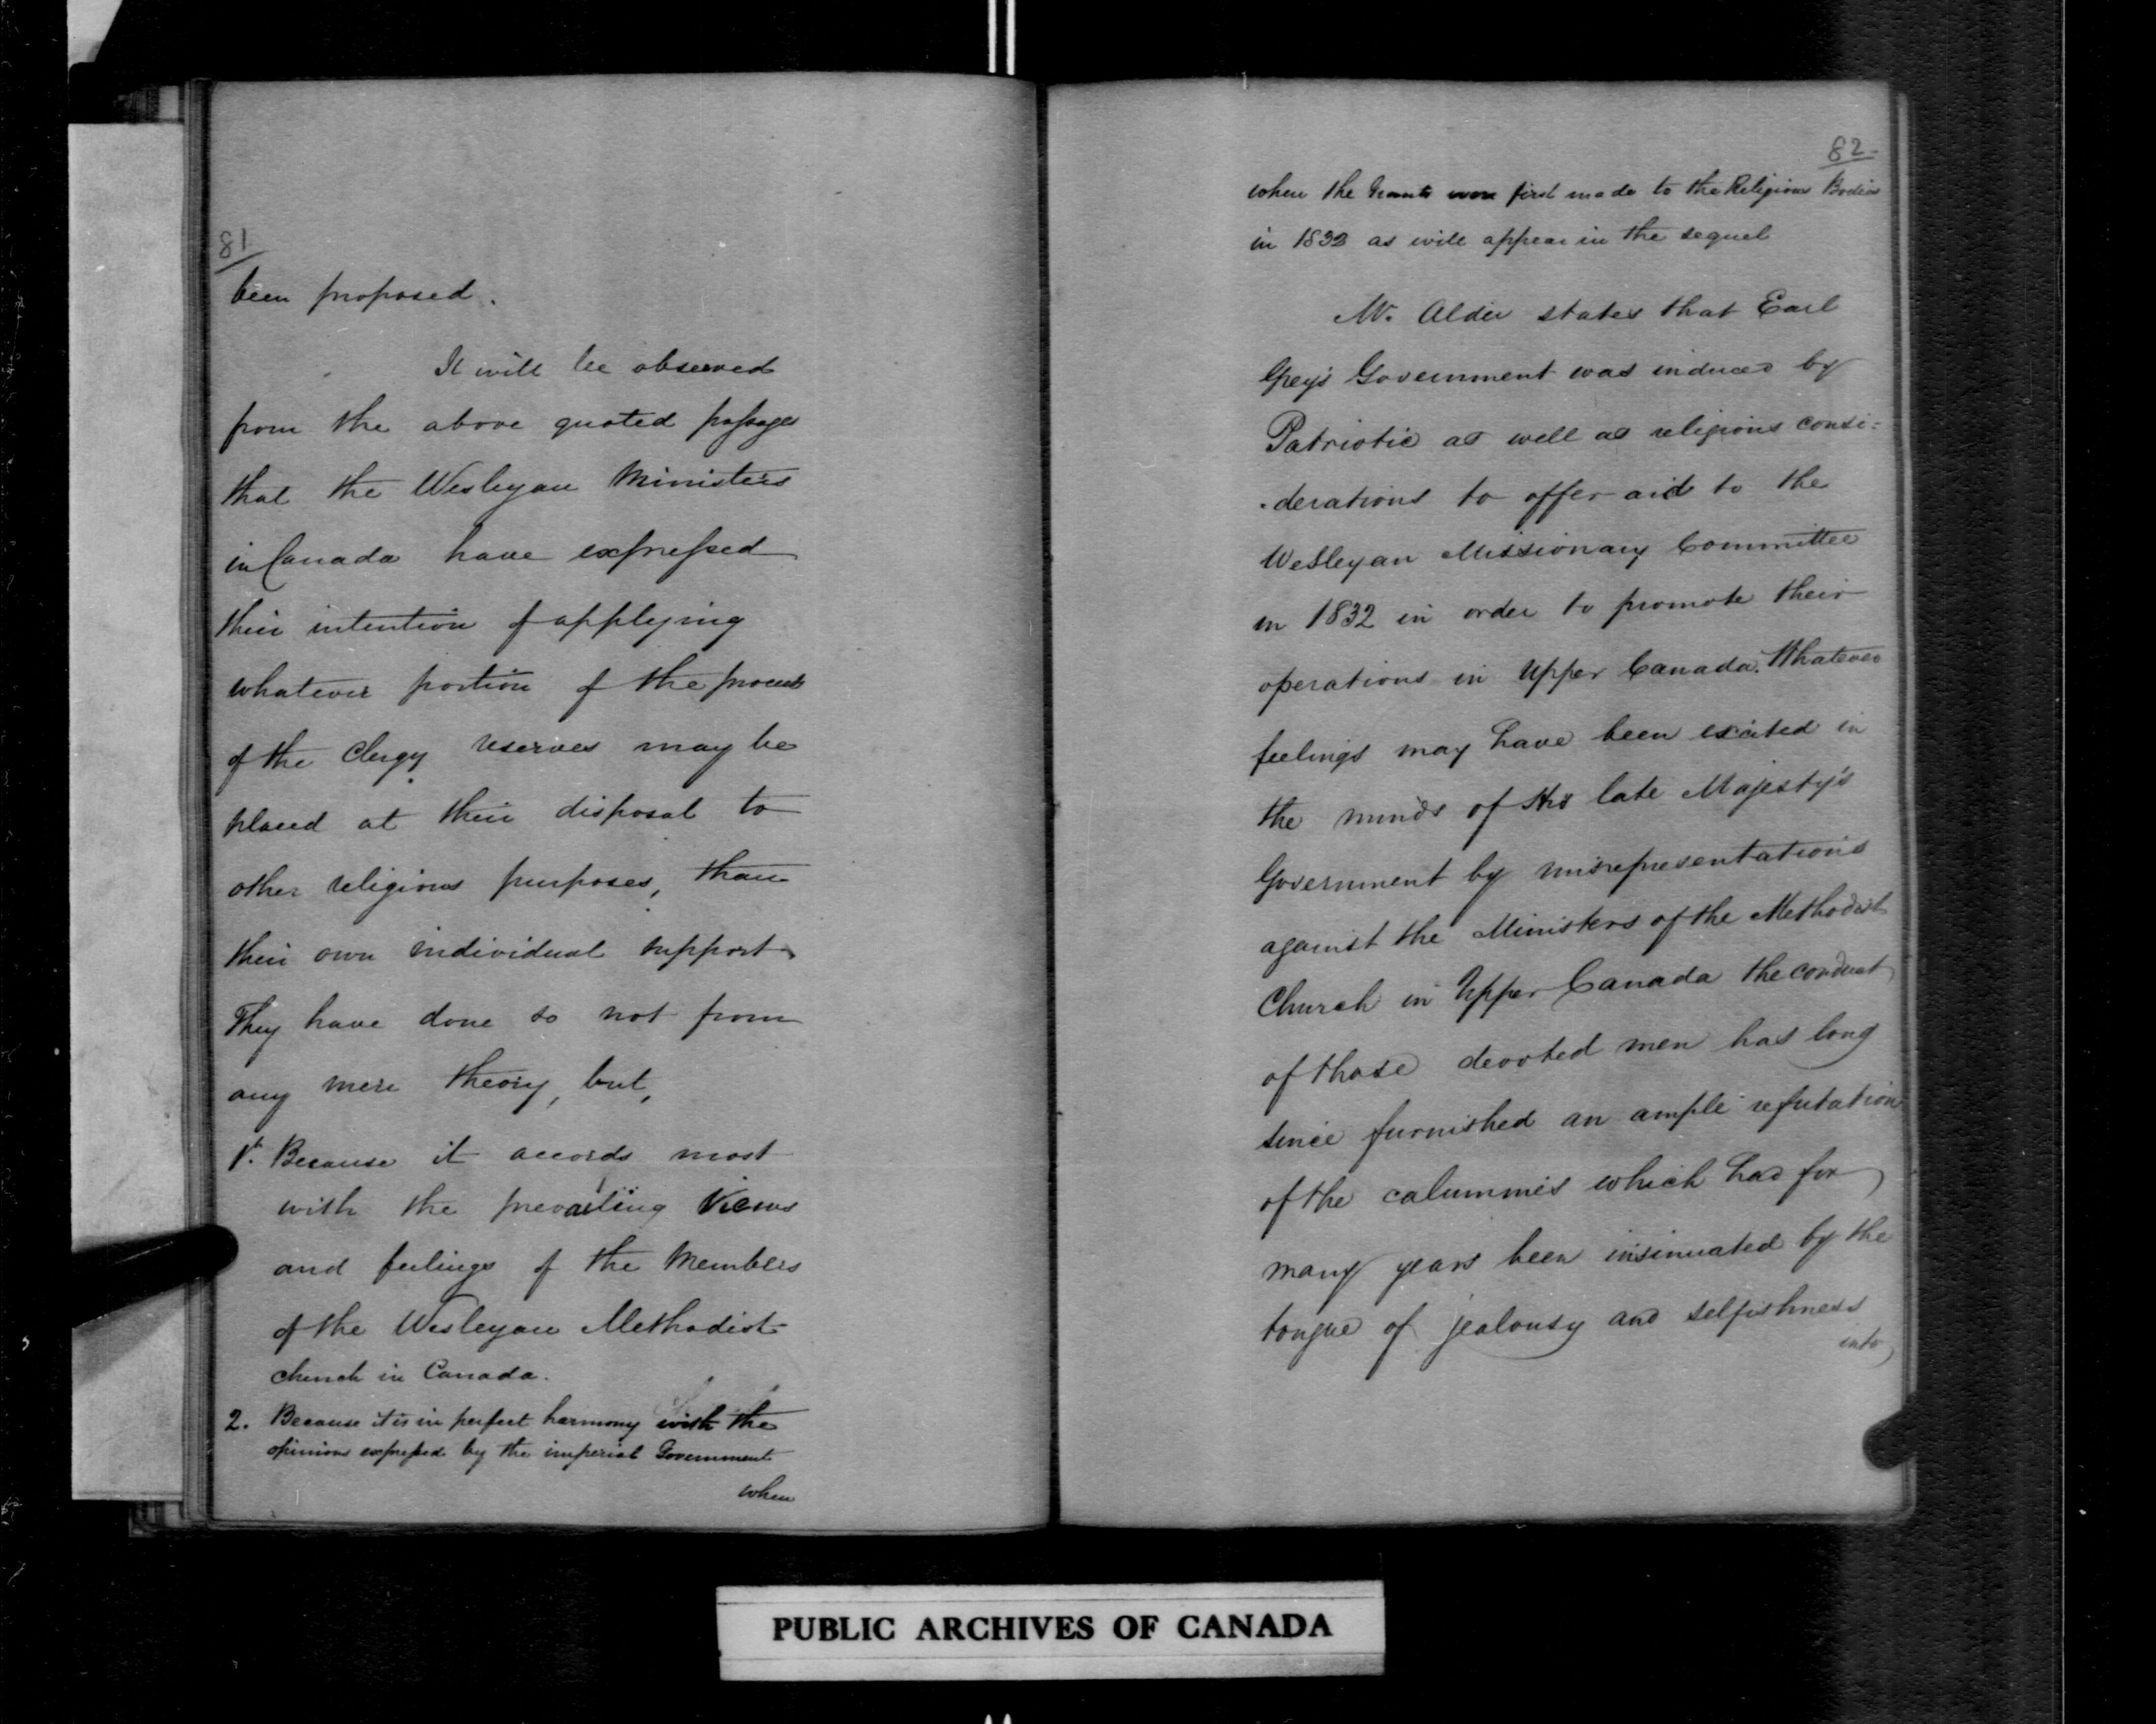 81
been proposed.
It will be observed
from the above quoted passages
that the Wesleyan Ministers
in Canada have expressed
their intention of applying
whatever portion of the proceeds
of the Clergy reserves may be
placed at their disposal to
other religious purposes, than
their own individual support.
They have done so not from
any mere theory, but,
1st. Because it accords most
with the prevailing views
and feelings of the Members
of the Wesleyan Methodist
church in Canada.
2. Because it is in perfect harmony with the
opinions expressed by the imperial Government
when
82
when the Grants were first made to the Religious Bodies
in 1832 as will appear in the sequel
Mr. Alder states that Earl
Grey's Government was induced by
Patriotic as well as religious consi=
-derations to offer aid to the
Wesleyan Missionary Committee
in 1832 in order to promote their
operations in Upper Canada. Whatever
feelings may have been excited in
the minds of His late Majesty's
Government by misrepresentations
against the Ministers of the Methodist
Church in Upper Canada the conduct
of those devoted men has long
since furnished an ample refutation
of the calumnies which had for
many years been insinuated by the
tongue of jealousy and selfishness
into
PUBLIC ARCHIVES OF CANADA